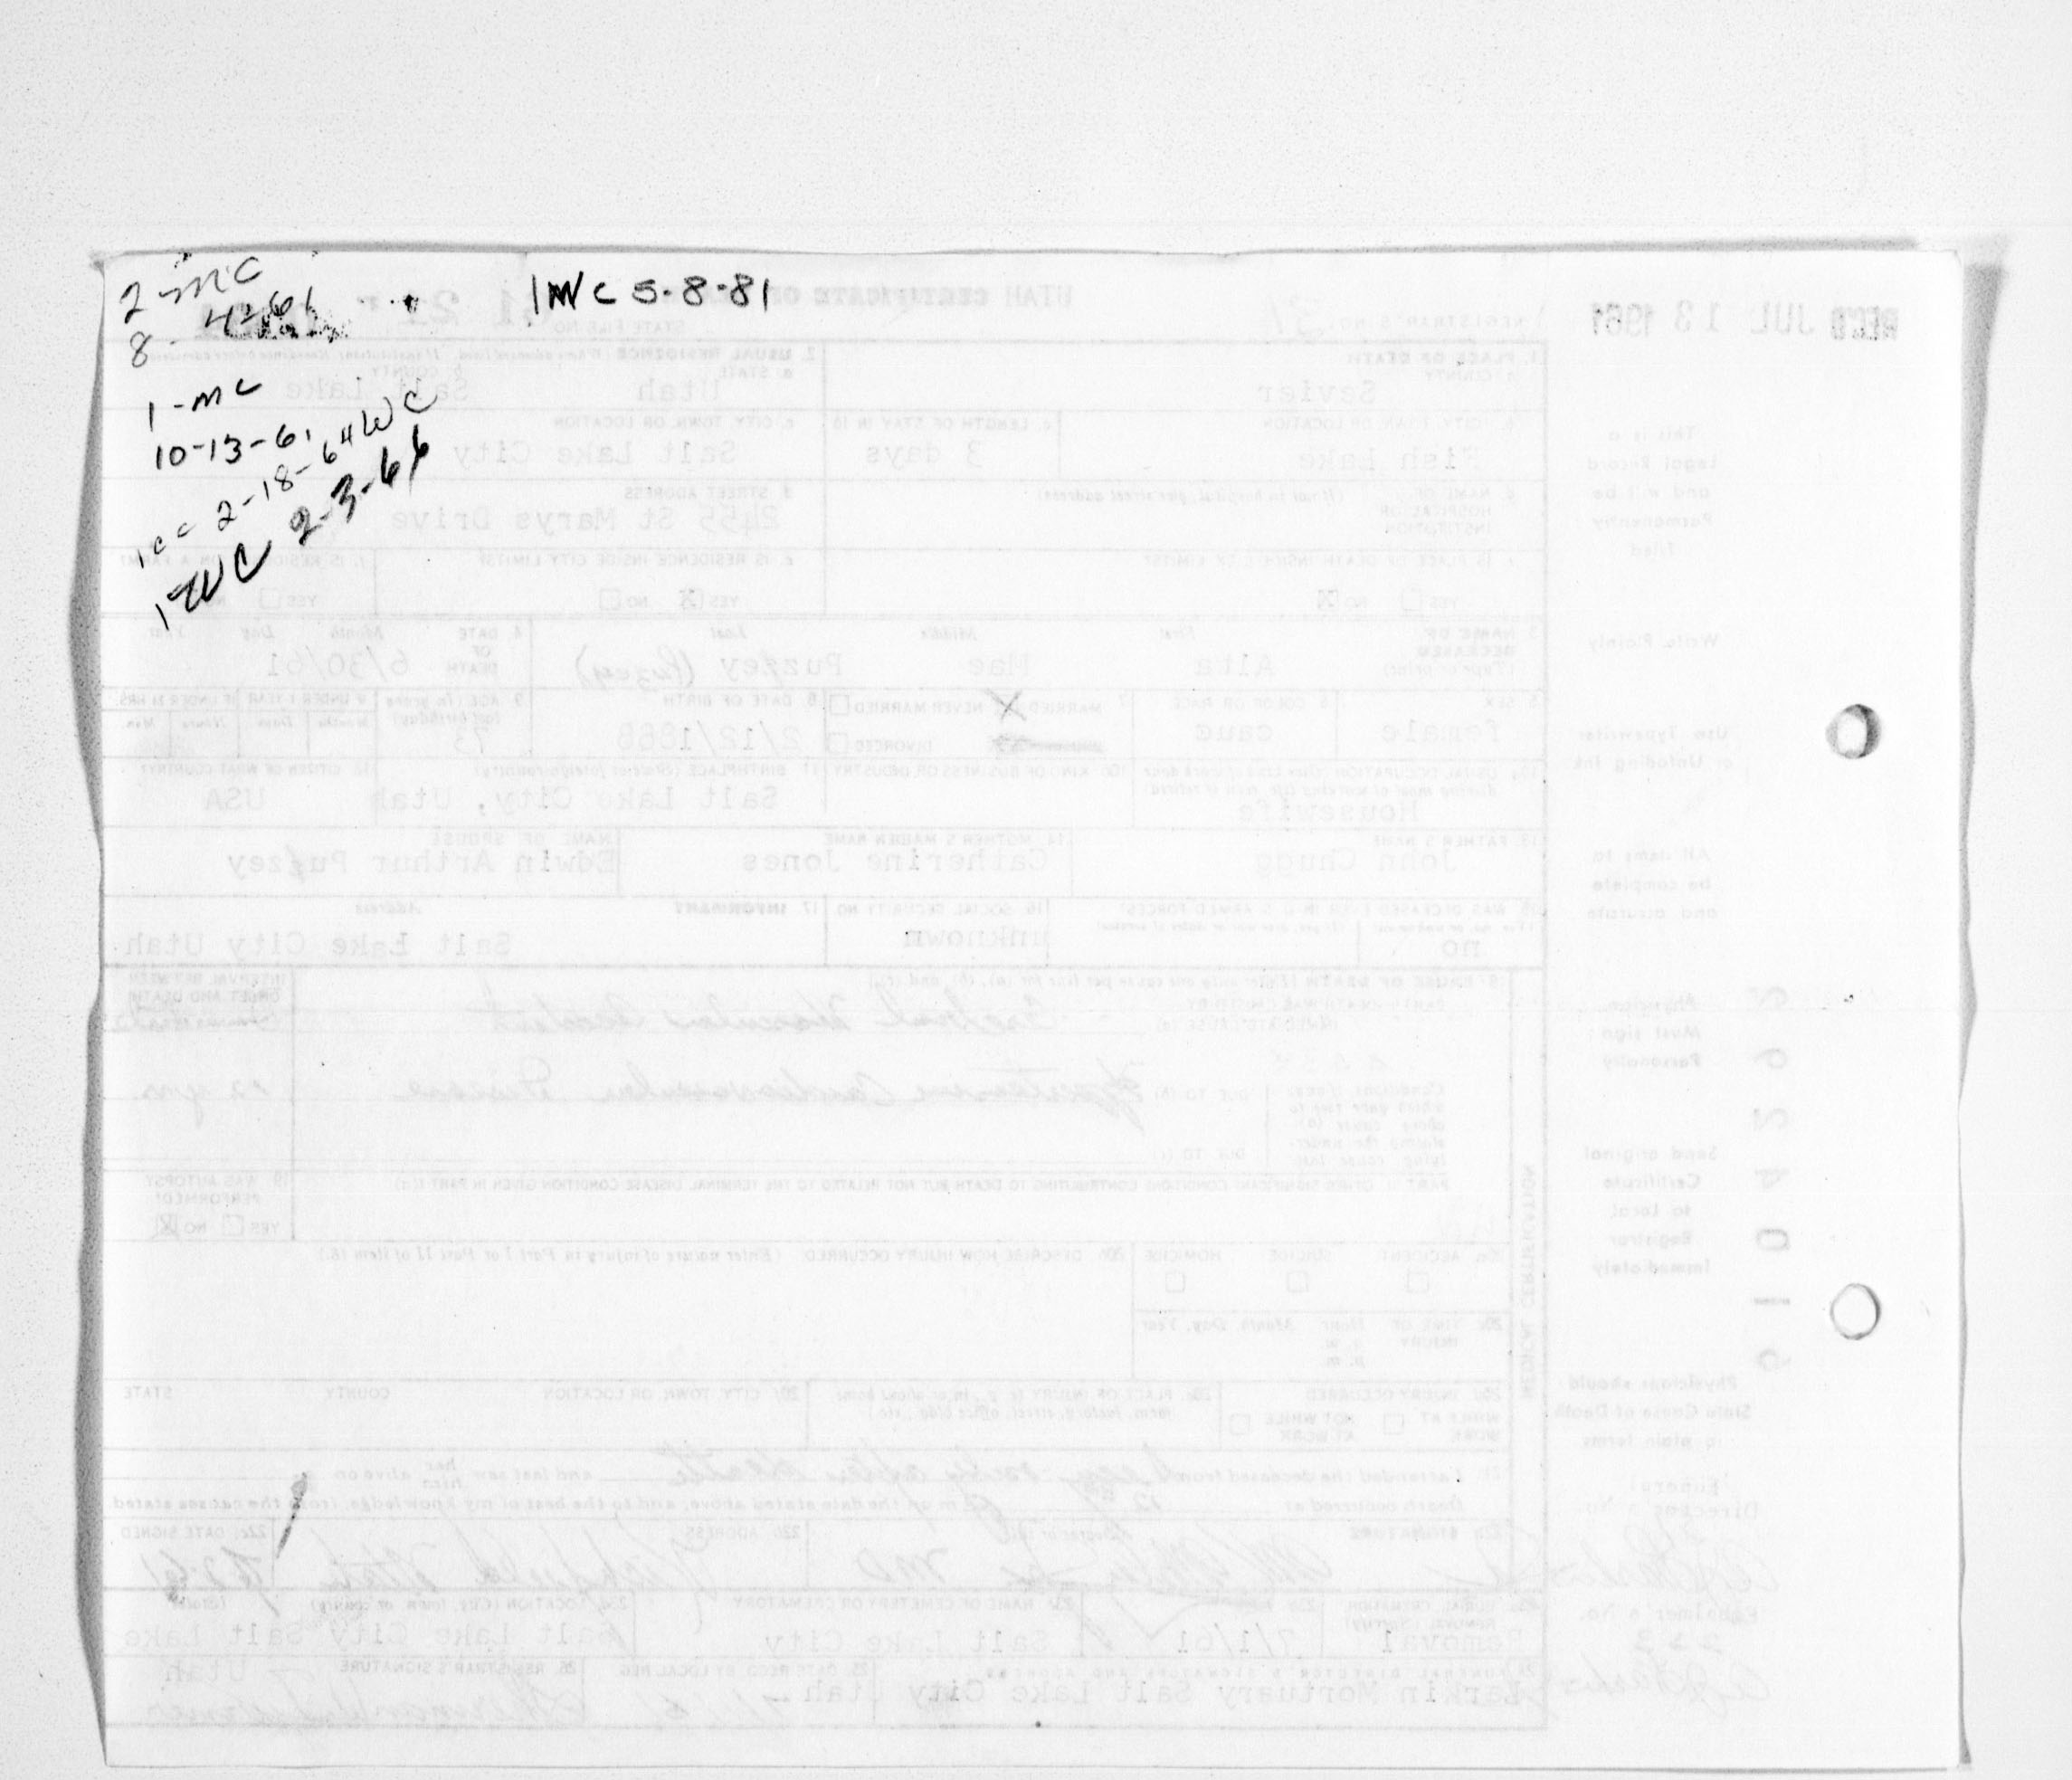 2-MC
8-4-61
1-MC
10-13-61
1 CC 2-18-64 WC
1 WC 2-3-66
1 MC 5-8-81
REC'D JUL 13 1961
UTAH CERTIFICATE OF
REGISTRAR'S NO. 31
STATE FILE NO. 61
1. PLACE OF DEATH
a. COUNTY
Sevier
2. USUAL RESIDENCE
a. STATE
Utah
b. COUNTY
Salt Lake
b. CITY, TOWN, OR LOCATION
Fish Lake
c. LENGTH OF STAY IN 1b
3 days
c. CITY, TOWN, OR LOCATION
Salt Lake City
d. NAME OF HOSPITAL OR INSTITUTION (If not in hospital, give street address)
d. STREET ADDRESS
2455 St Marys Drive
e. IS PLACE OF DEATH INSIDE CITY LIMITS?
YES NO X
e. IS RESIDENCE INSIDE CITY LIMITS?
YES X NO
f. IS RESIDENCE ON A FARM?
YES NO
3. NAME OF DECEASED (Type or print)
First Middle Last
Alta Mae Puzzey (Puzey)
4. DATE OF DEATH Month Day Year
6/30/61
5. SEX
female
6. COLOR OR RACE
cauc
7. MARRIED NEVER MARRIED
DIVORCED
8. DATE OF BIRTH
2/12/1888
9. AGE (In years last birthday)
73
IF UNDER 1 YEAR IF UNDER 24 HRS.
Months Days Hours Min.
10a. USUAL OCCUPATION
Housewife
10b. KIND OF BUSINESS OR INDUSTRY
11. BIRTHPLACE (State or foreign country)
Salt Lake City, Utah
12. CITIZEN OF WHAT COUNTRY?
USA
13. FATHER'S NAME
John Chugg
14. MOTHER'S MAIDEN NAME
Catherine Jones
NAME OF SPOUSE
Edwin Arthur Puzzey
15. WAS DECEASED EVER IN U. S. ARMED FORCES?
no
16. SOCIAL SECURITY NO.
unknown
17. INFORMANT Address
Salt Lake City Utah
18. CAUSE OF DEATH (Enter only one cause per line for (a), (b), and (c))
INTERVAL BETWEEN ONSET AND DEATH
IMMEDIATE CAUSE (a) Cerebral Vascular Accident
DUE TO (b) Hypertensive Cardiovascular Disease 12 yrs.
DUE TO (c)
PART II. OTHER SIGNIFICANT CONDITIONS CONTRIBUTING TO DEATH BUT NOT RELATED TO THE TERMINAL DISEASE CONDITION GIVEN IN PART I(a)
19. WAS AUTOPSY PERFORMED?
YES NO X
20a. ACCIDENT SUICIDE HOMICIDE
20b. DESCRIBE HOW INJURY OCCURRED. (Enter nature of injury in Part I or Part II of item 18.)
20c. TIME OF INJURY Hour Month, Day, Year
a. m.
p. m.
20d. INJURY OCCURRED
WHILE AT WORK NOT WHILE AT WORK
20e. PLACE OF INJURY
20f. CITY, TOWN, OR LOCATION COUNTY STATE
21. I attended the deceased from only after death and last saw her him alive on
Death occurred at m on the date stated above, and to the best of my knowledge, from the causes stated.
22a. SIGNATURE (Degree or title)
MD
22b. ADDRESS
Utah
22c. DATE SIGNED
23a. BURIAL, CREMATION, REMOVAL (Specify)
Removal
23b. DATE
7/1/61
23c. NAME OF CEMETERY OR CREMATORY
Salt Lake City
23d. LOCATION (City, town, or county) (State)
Salt Lake City Salt Lake
Utah
24. FUNERAL DIRECTOR'S SIGNATURE AND ADDRESS
Larkin Mortuary Salt Lake City Utah
25. DATE REC'D BY LOCAL REG.
26. REGISTRAR'S SIGNATURE
MEDICAL CERTIFICATION
This is a
Legal Record
and will be
Permanently
Filed
Write Plainly
Use Typewriter
or Unfading Ink
All items to
be complete
and accurate
Physician
Must sign
Personally
Send original
Certificate
to Local
Registrar
Immediately
Physicians should
State Cause of Death
in plain terms
Funeral
Director's No.
Embalmer's No.